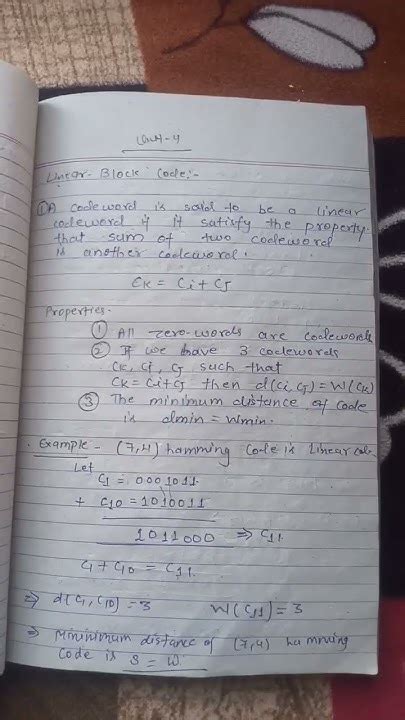 Unit-4
Linear-Block Code:-
① A codeword is said to be a linear
codeword if it satisfy the property.
that sum of two codeword
is another codeword.
CK = Ci + Cj
Properties-
① All zero-words are codewords
② If we have 3 codewords
CK, Ci, Cj such that
CK = Ci+Cj then d(Ci, Cj) = W(CK)
③ The minimum distance of code
is dmin = Wmin.
Example - (7,4) hamming code is linear code
Let
C1 = 0001011.
+ C10 = 1010011
1011000 ⇒ C11.
C1 + C10 = C11.
⇒ d(C1, C10) = 3 W(C11) = 3
⇒ Minimum distance of (7,4) hamming
code is 3 = W.